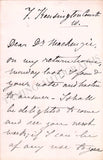 7, Kensington Court
W.
Dear Dr Mackenzie,
on my return home,
Sunday last, I found
your note and hasten
to answer. I shall
be delighted to come
and see you next
week, if I can be
of any use to you